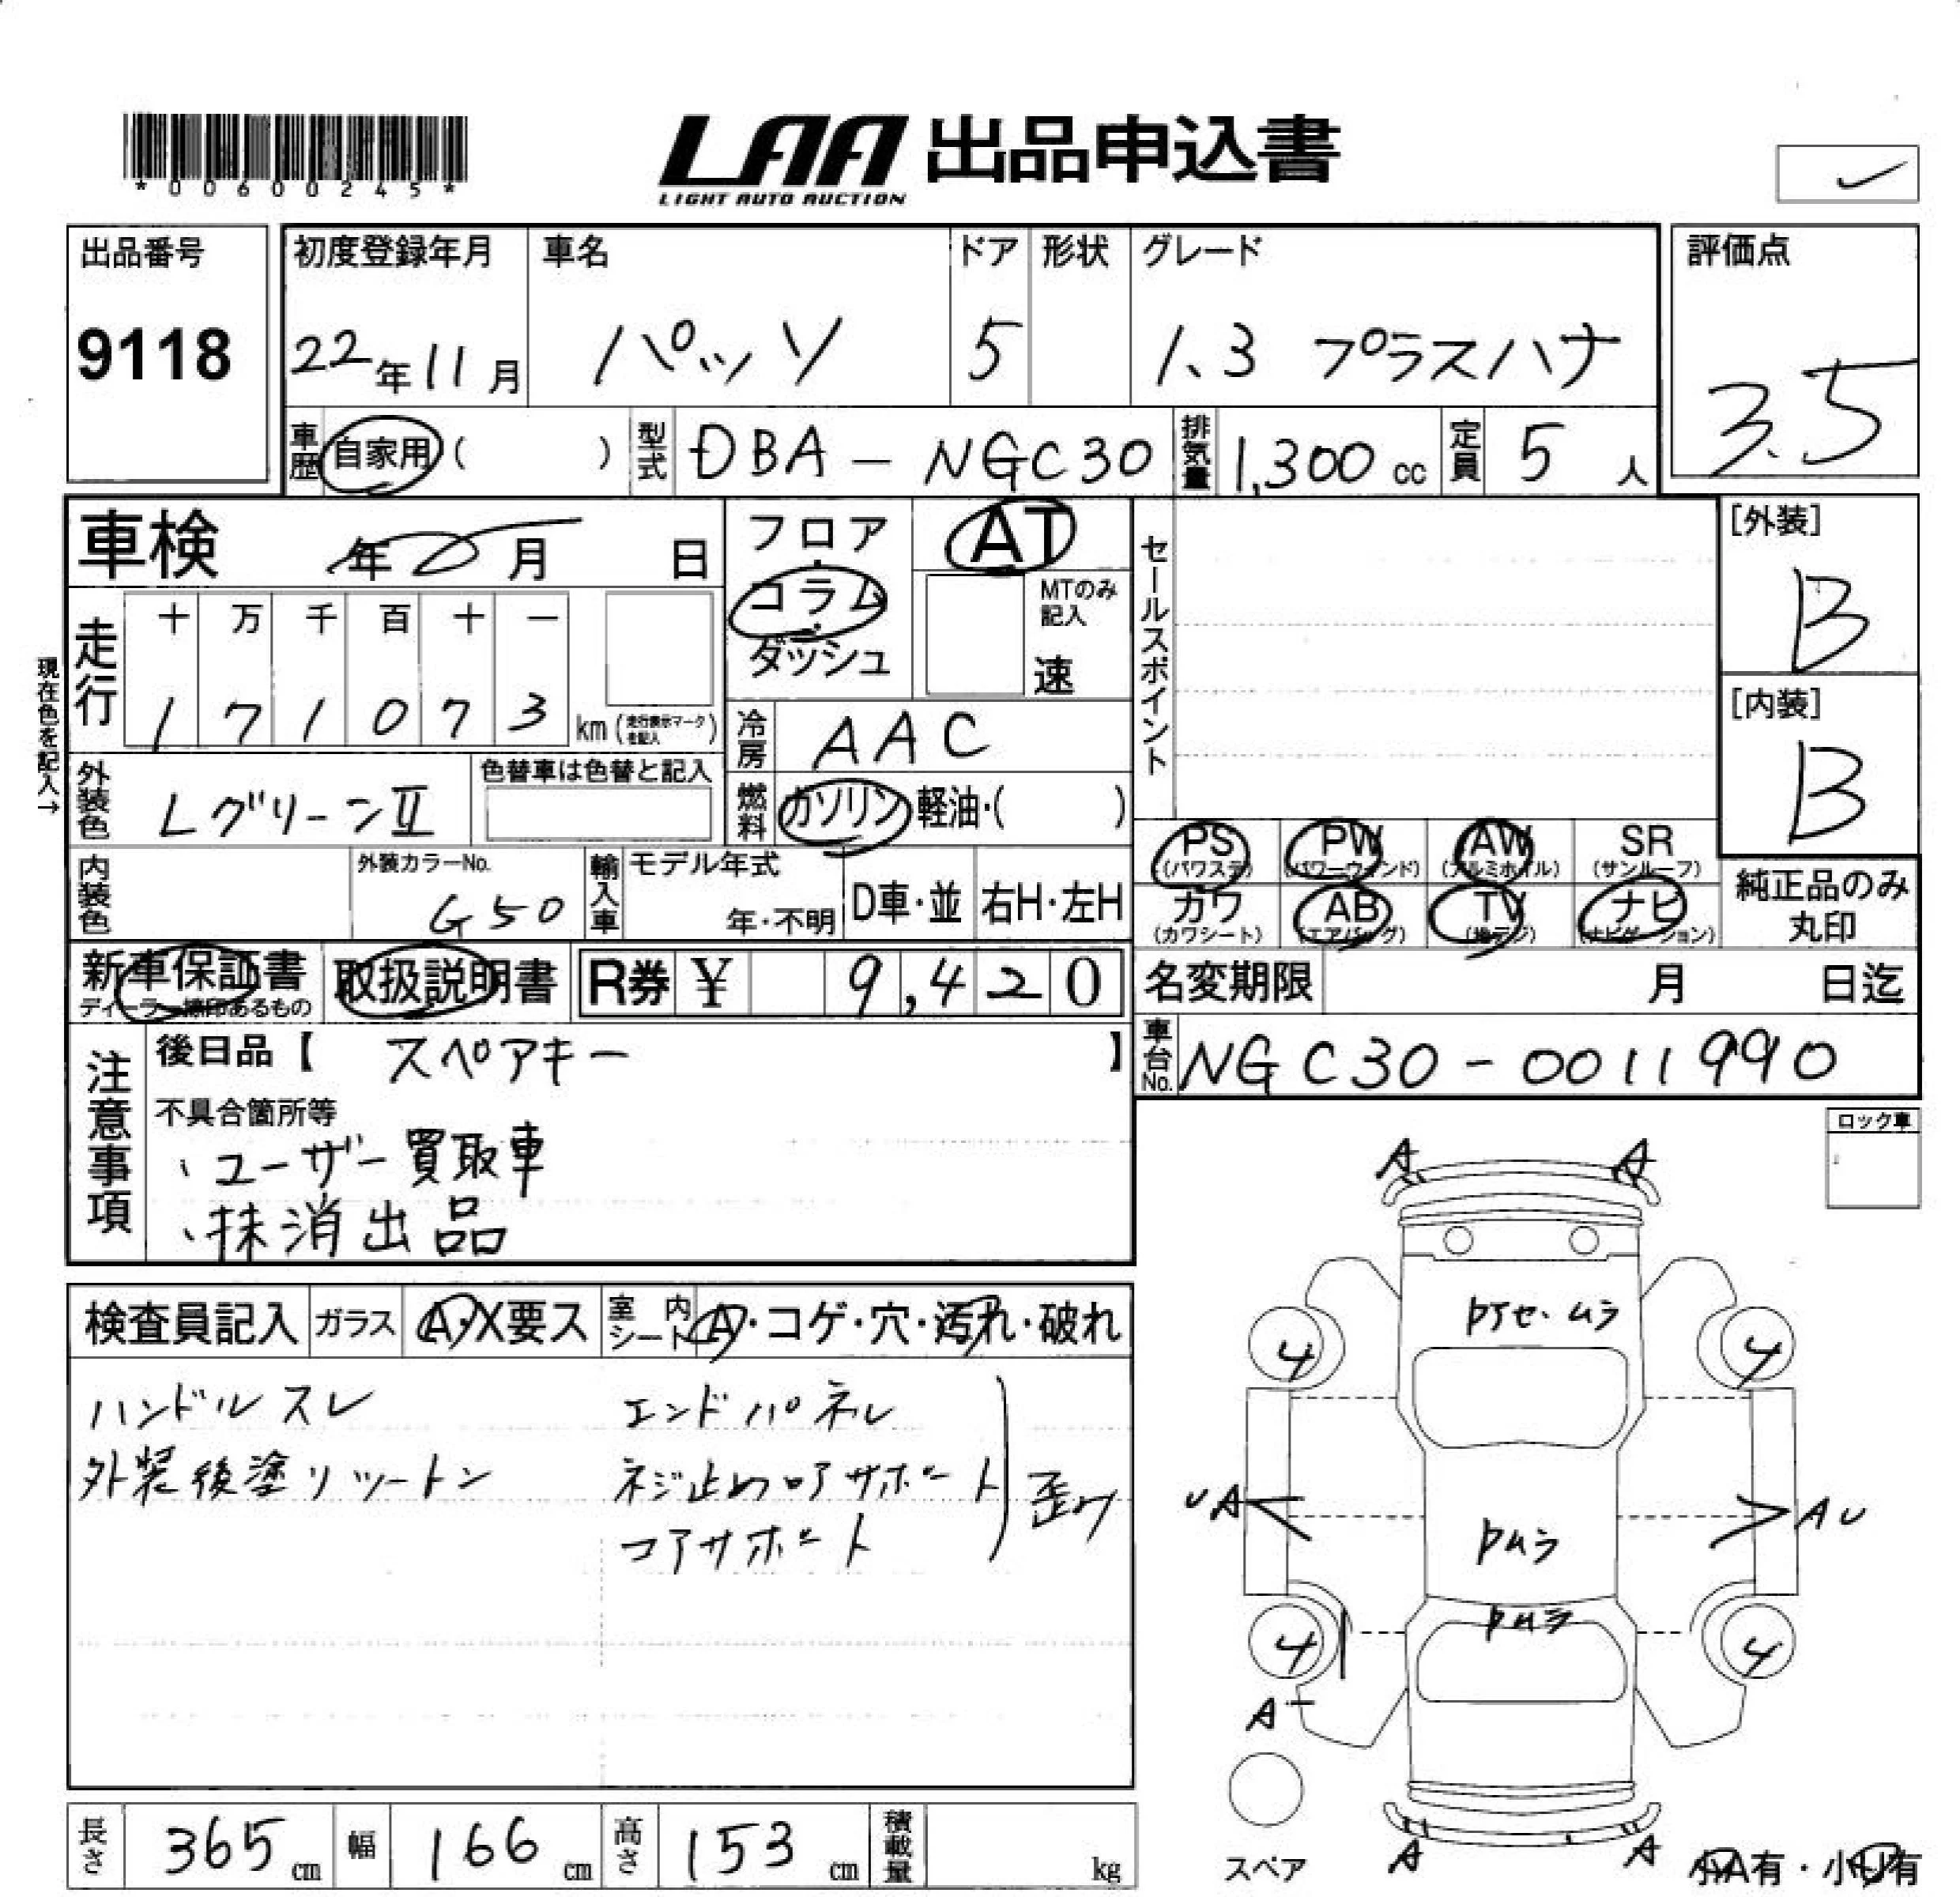 *00600245*
LAA 出品申込書
LIGHT AUTO AUCTION
出品番号
9118
初度登録年月
22年11月
車名
パッソ
ドア
5
形状
グレード
1.3 プラスハナ
評価点
3.5
車歴
自家用( )
型式
DBA-NGC30
排気量
1,300cc
定員
5人
車検 年 月 日
フロア
コラム
ダッシュ
AT
MTのみ
記入
速
セールスポイント
[外装]
B
[内装]
B
現在色を記入→
走行
十 万 千 百 十 一
1 7 1 0 7 3 km
冷房
AAC
外装色
Lグリーン II
色替車は色替と記入
燃料
ガソリン・軽油・( )
PS PW AW SR
(パワステ) (パワーウィンド) (アルミホイル) (サンルーフ)
カワ AB TV ナビ
(カワシート) (エアバッグ) (地デジ) (ナビゲーション)
純正品のみ
丸印
内装色
外装カラーNo.
G50
輸入車
モデル年式
年・不明
D車・並
右H・左H
新車保証書
取扱説明書
R券 ¥ 9,420
名変期限 月 日迄
車台No.
NGC30-0011990
注意事項
後日品【 スペアキー 】
不具合箇所等
、ユーザー買取車
、抹消出品
ロック車
検査員記入
ガラス
A・X要ス
室内
シート
A・コゲ・穴・汚れ・破れ
ハンドルスレ
外装後塗リツートン
エンドパネル
ネジ止めロアサポート
コアサポート
歪ワ
A A
4 4
UA
AU
Pムラ
Pムラ
4 4
A
A A
スペア
小A有・小U有
長さ
365cm
幅
166cm
高さ
153cm
積載量
kg